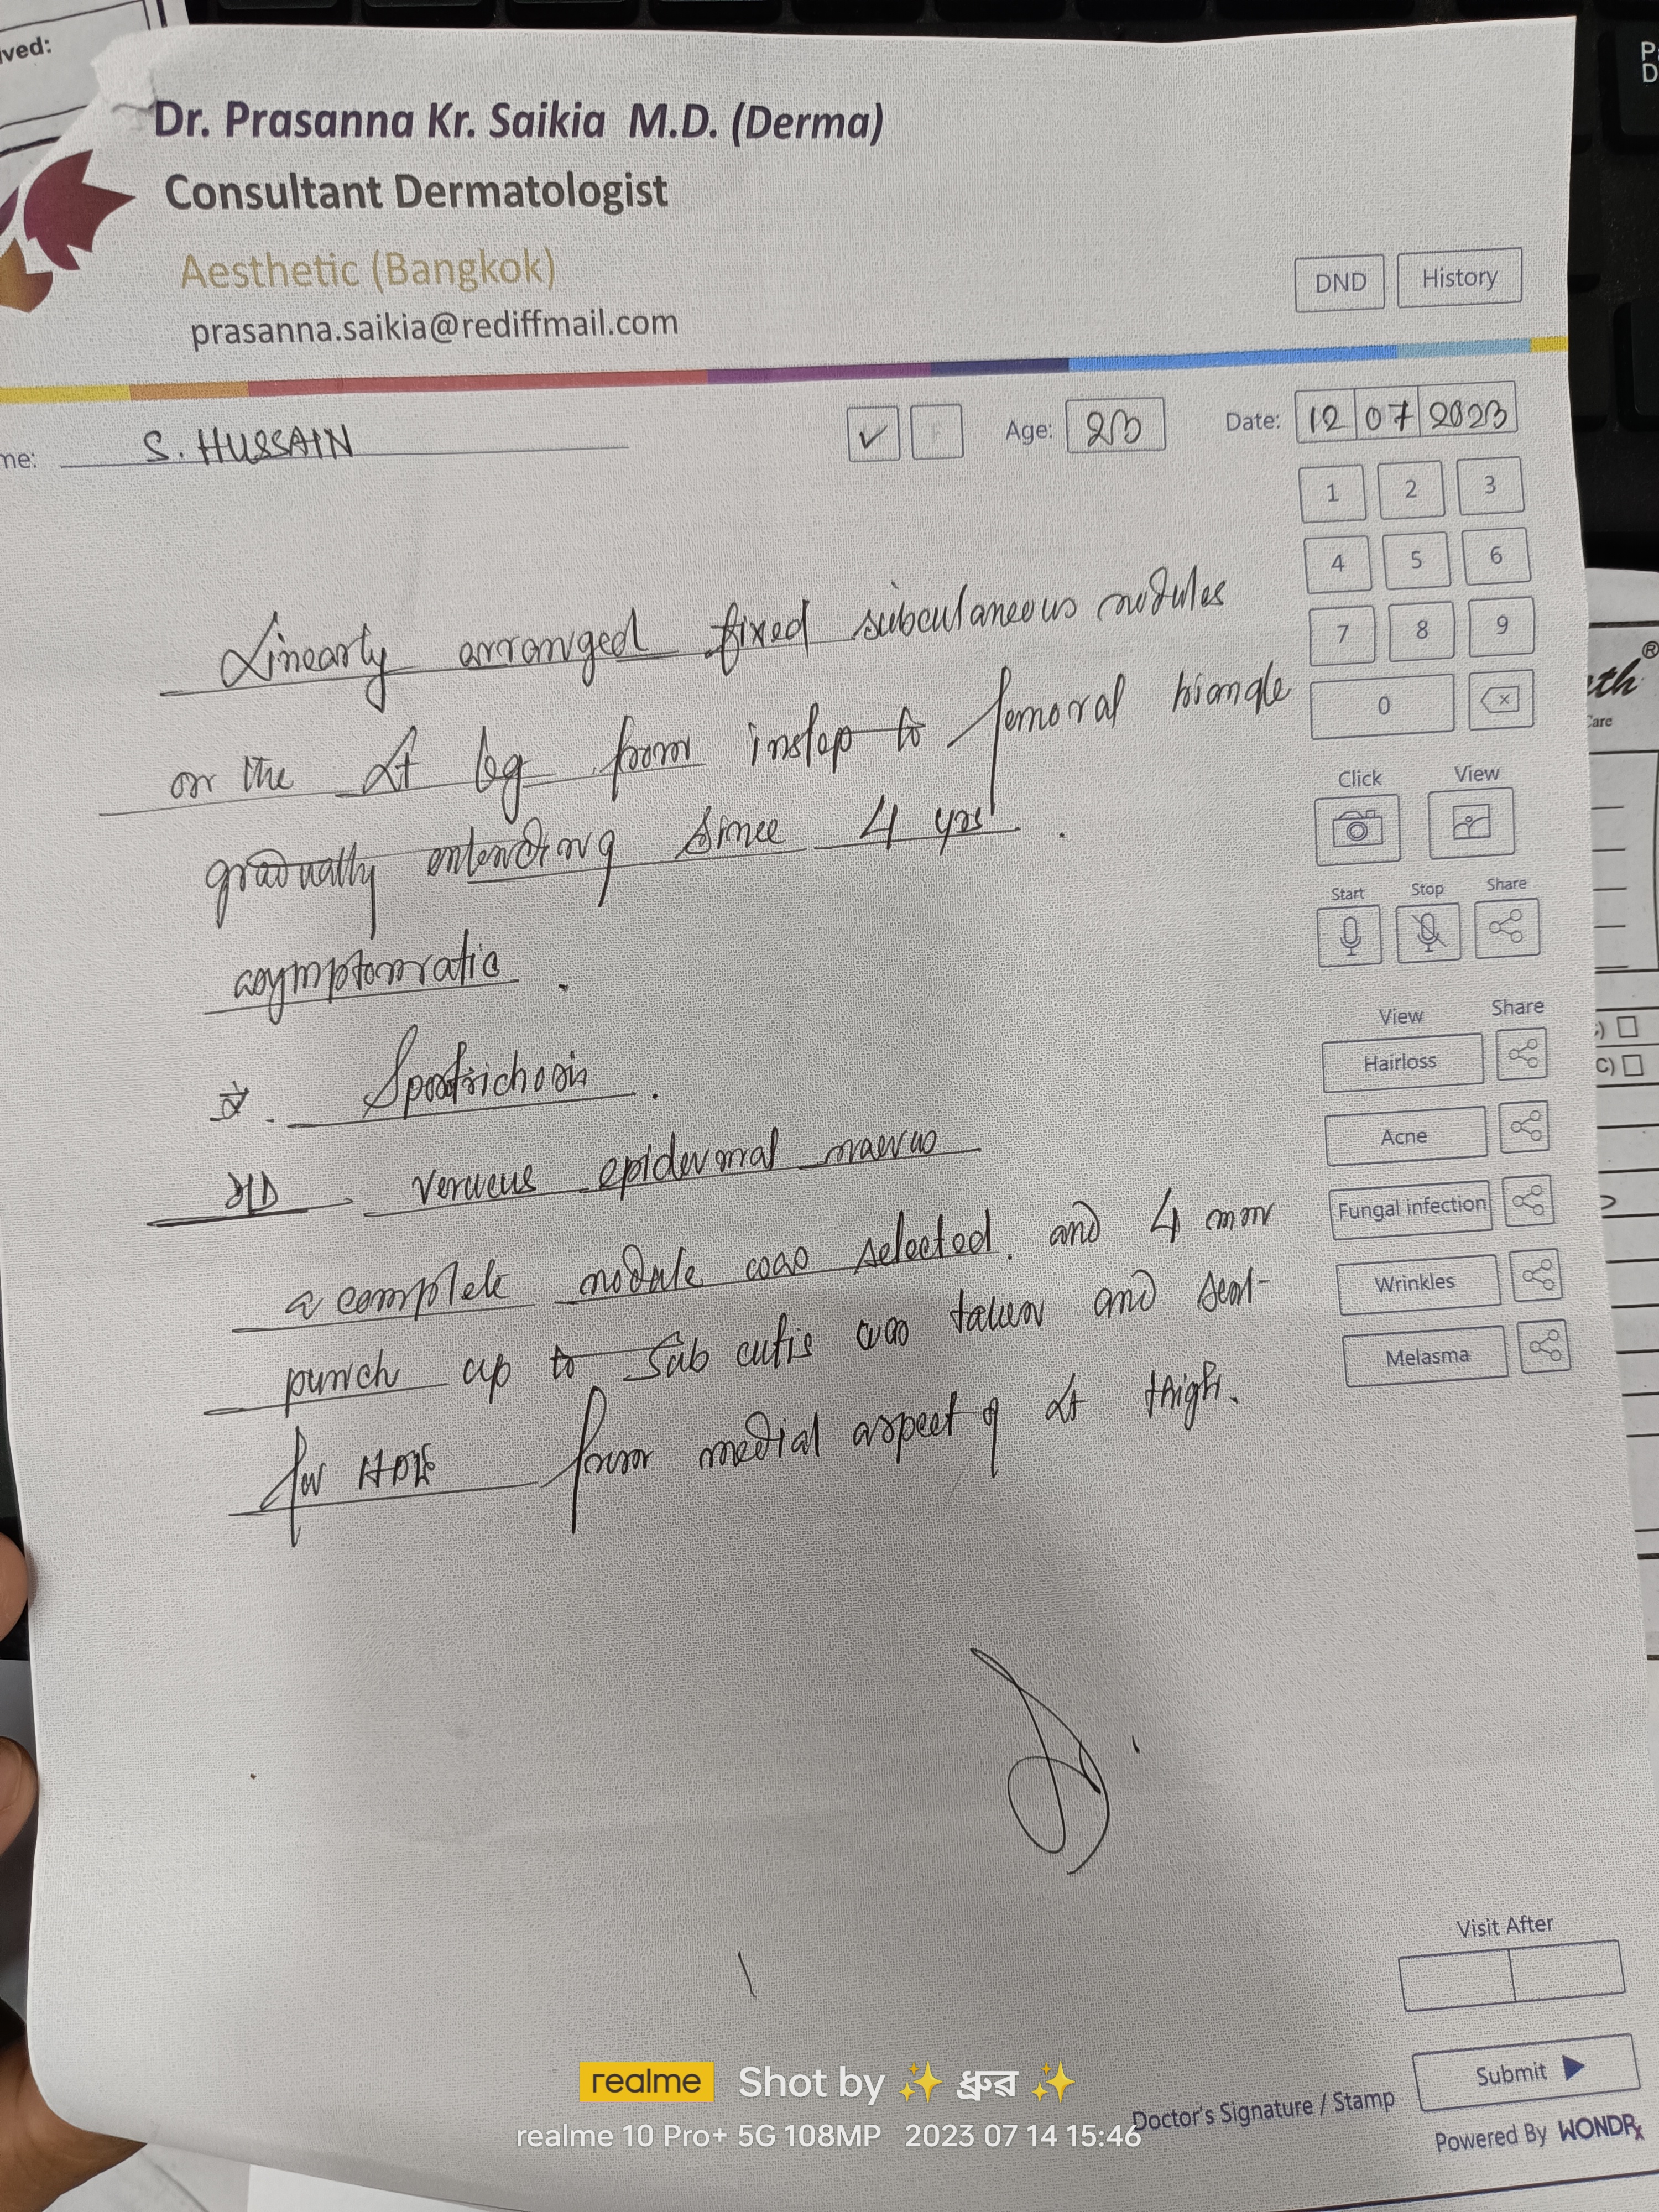 ved:
Dr. Prasanna Kr. Saikia M.D. (Derma)
Consultant Dermatologist
Aesthetic (Bangkok)
prasanna.saikia@rediffmail.com
DND History
me: S. HUSSAIN ✓ F Age: Date: 12 07 2023
1 2 3
4 5 6
7 8 9
0
Linearly arranged fixed subcutaneous nodules
on the Lt leg from instep to femoral triangle
gradually extending since 4 yrs.
asymptomatic.
Sporotrichosis.
epidermal naevus
a complete nodule was selected. and 4 mm
punch up to sub cutis was taken and sent
for from medial aspect of Lt thigh.
Click View
Start Stop Share
View Share
Hairloss
Acne
Fungal infection
Wrinkles
Melasma
Visit After
Submit
Doctor's Signature / Stamp
Powered By WONDRx
th®
Care
C)
realme Shot by ✨ ধ্রুৱ ✨
realme 10 Pro+ 5G 108MP 2023 07 14 15:46